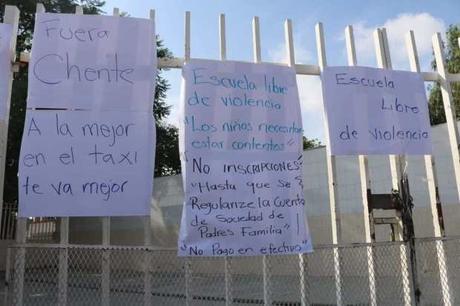 Fuera
Chente
A la mejor
en el taxi
te va mejor
Escuela libre
de violencia
"Los niñas necesitan
estar contentos"
No INSCRIPCIONES
"Hasta que se
Regularize la Cuenta
de Sociedad de
Padres Familia"
"No Pago en efectivo"
Escuela
Libre
de violencia